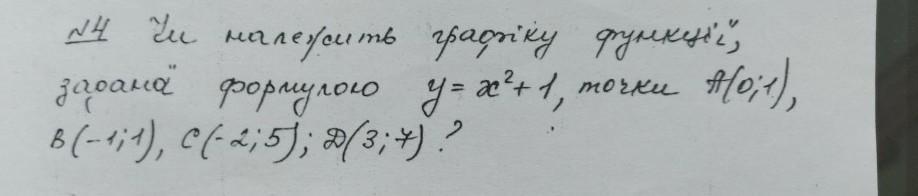 №4 Чи належить графіку функції,
задана формулою y = x² + 1, точки A(0;1),
B(-1;1), C(-2;5); D(3;7)?